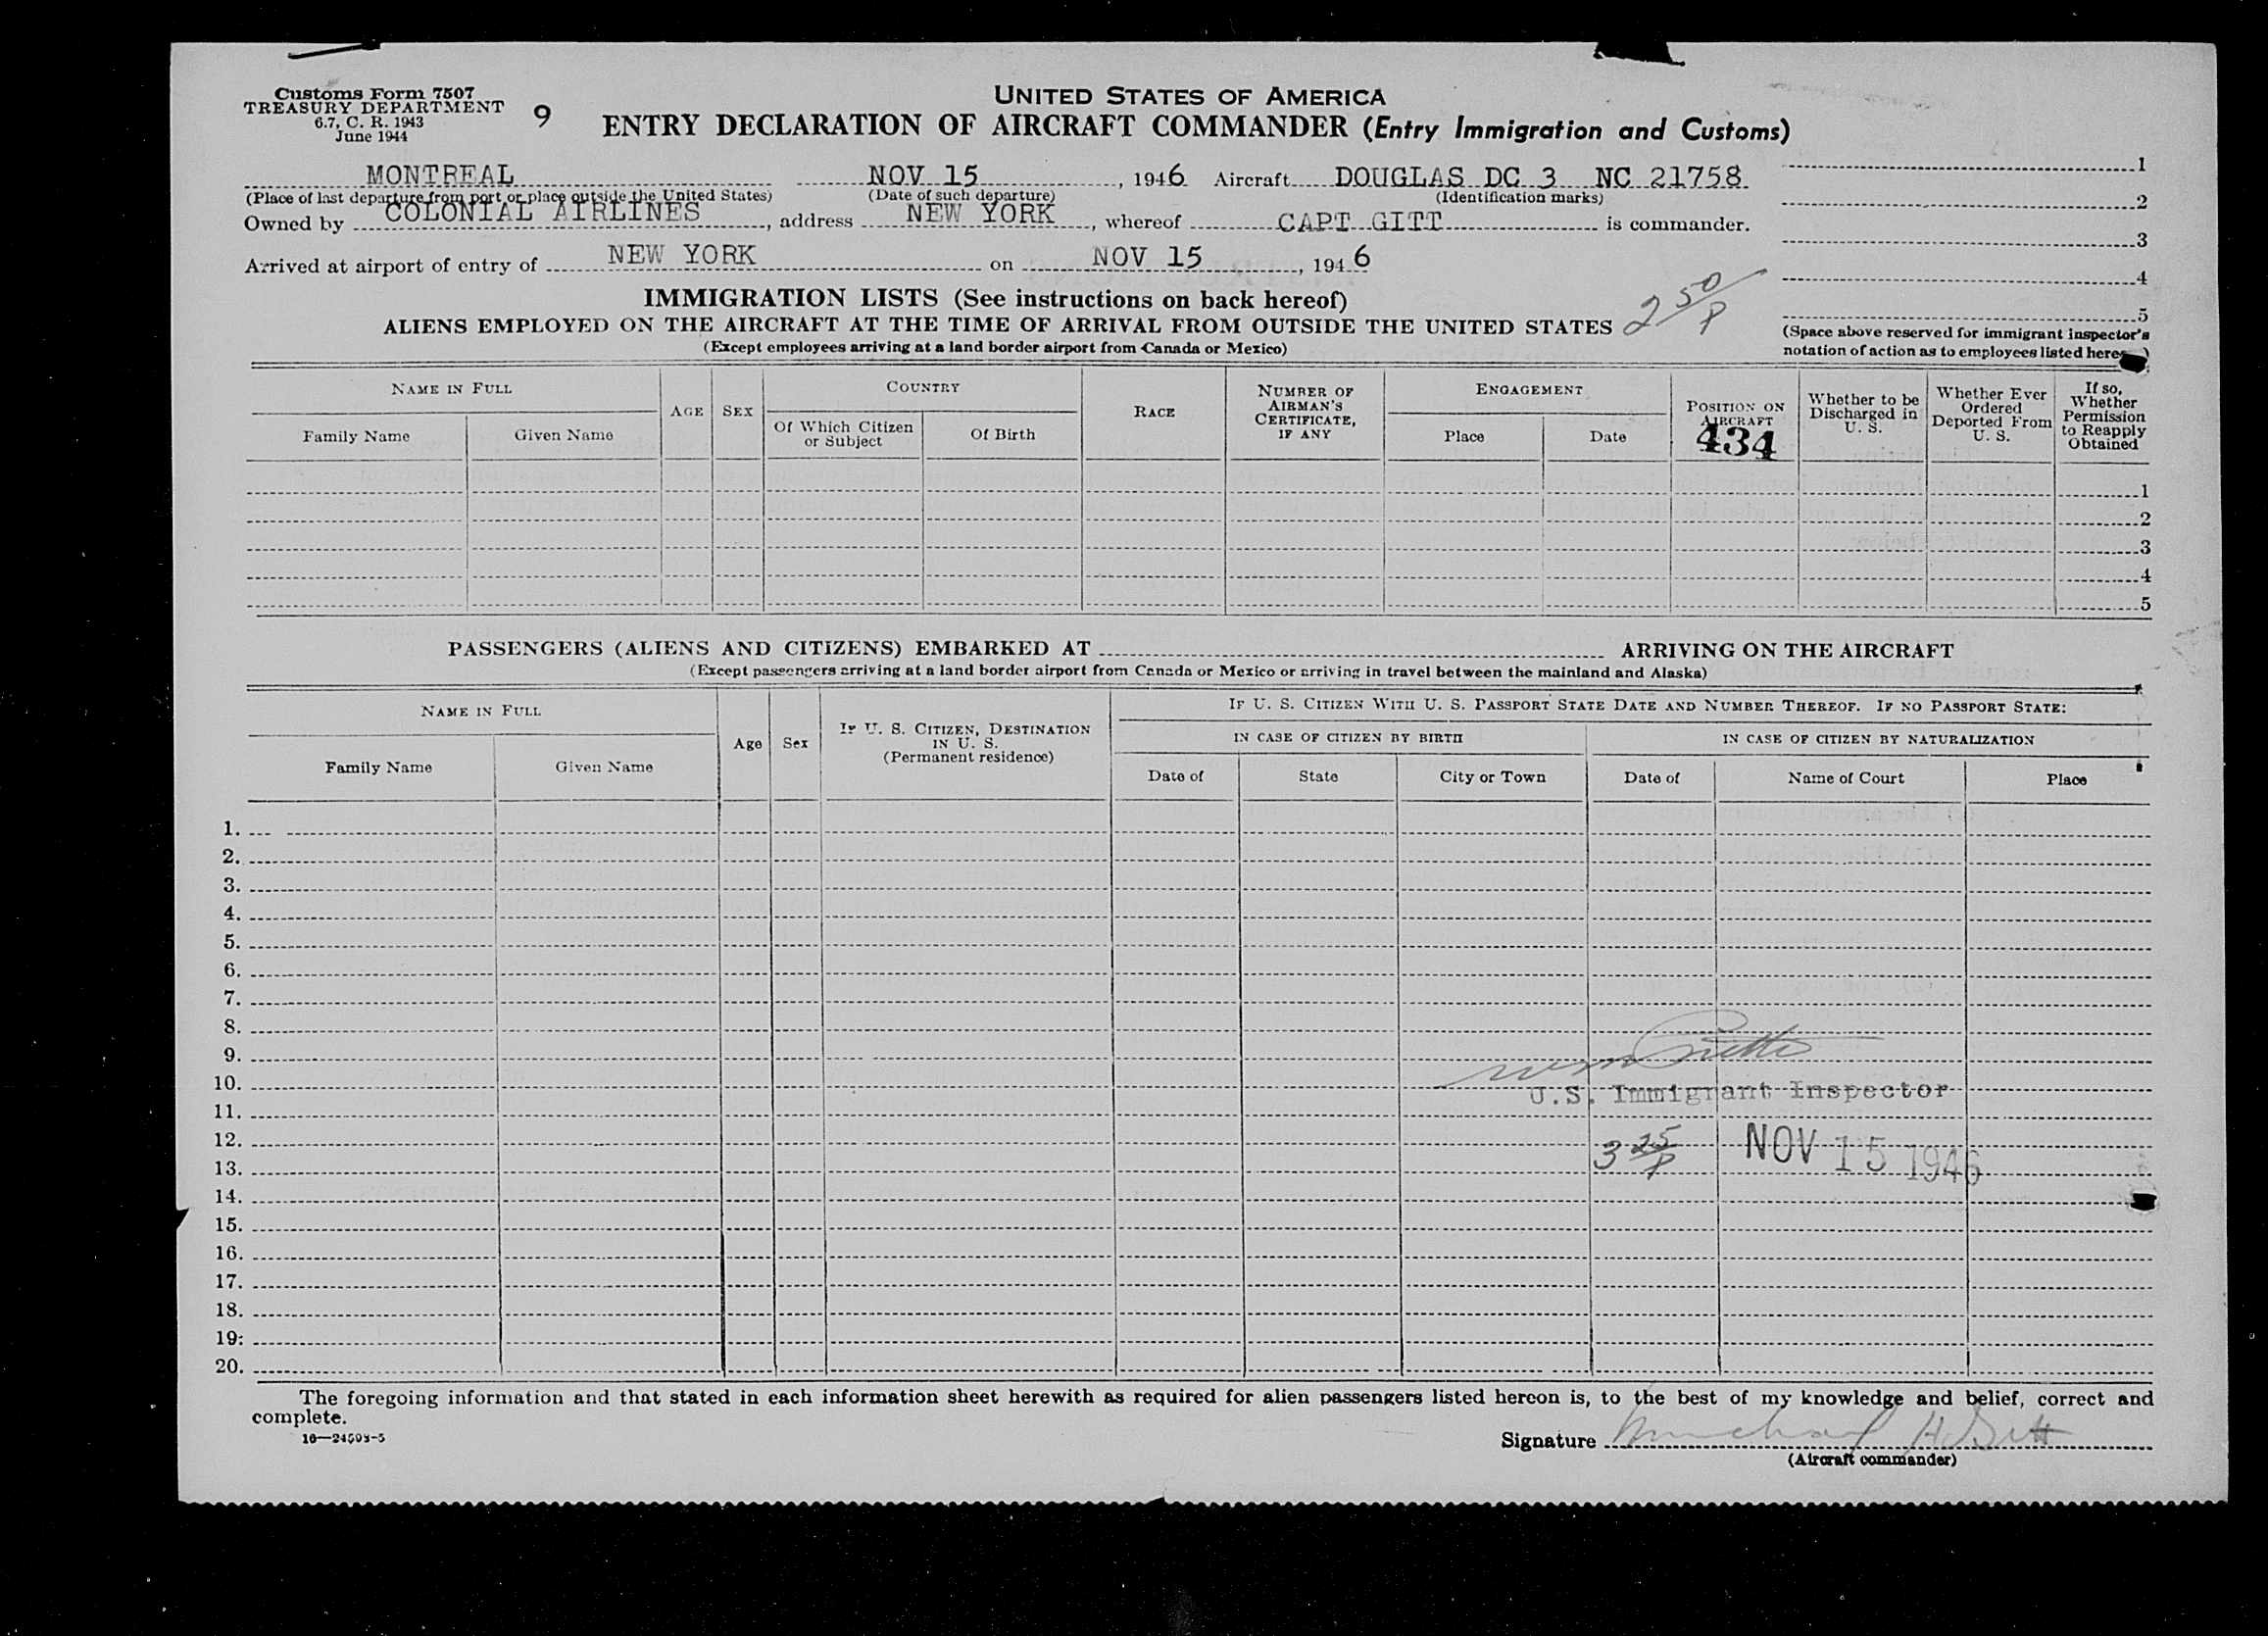 Customs Form 7507
TREASURY DEPARTMENT
6.7, C. R. 1943
June 1944
9
UNITED STATES OF AMERICA
ENTRY DECLARATION OF AIRCRAFT COMMANDER (Entry Immigration and Customs)
MONTREAL NOV 15, 1946 Aircraft DOUGLAS DC 3 NC 21758
(Place of last departure from port or place outside the United States) (Date of such departure) (Identification marks)
Owned by COLONIAL AIRLINES, address NEW YORK, whereof CAPT GITT is commander.
Arrived at airport of entry of NEW YORK on NOV 15, 1946
1
2
3
4
5
(Space above reserved for immigrant inspector's
notation of action as to employees listed
IMMIGRATION LISTS (See instructions on back hereof)
ALIENS EMPLOYED ON THE AIRCRAFT AT THE TIME OF ARRIVAL FROM OUTSIDE THE UNITED STATES 2 50/P
(Except employees arriving at a land border airport from Canada or Mexico)
NAME IN FULL
Family Name
Given Name
AGE
SEX
COUNTRY
Of Which Citizen
or Subject
Of Birth
RACE
NUMBER OF
AIRMAN'S
CERTIFICATE,
IF ANY
ENGAGEMENT
Place
Date
POSITION ON
AIRCRAFT
434
Whether to be
Discharged in
U. S.
Whether Ever
Ordered
Deported From
U. S.
If so,
Whether
Permission
to Reapply
Obtained
1
2
3
4
5
PASSENGERS (ALIENS AND CITIZENS) EMBARKED AT ARRIVING ON THE AIRCRAFT
(Except passengers arriving at a land border airport from Canada or Mexico or arriving in travel between the mainland and Alaska)
NAME IN FULL
Family Name
Given Name
Age
Sex
IF U. S. CITIZEN, DESTINATION
IN U. S.
(Permanent residence)
IF U. S. CITIZEN WITH U. S. PASSPORT STATE DATE AND NUMBER THEREOF. IF NO PASSPORT STATE:
IN CASE OF CITIZEN BY BIRTH
Date of
State
City or Town
IN CASE OF CITIZEN BY NATURALIZATION
Date of
Name of Court
Place
1.
2.
3.
4.
5.
6.
7.
8.
9.
10.
U.S. Immigrant Inspector
11.
12.
3 25/P NOV 15 1946
13.
14.
15.
16.
17.
18.
19.
20.
The foregoing information and that stated in each information sheet herewith as required for alien passengers listed hereon is, to the best of my knowledge and belief, correct and
complete.
16—24503-5
Signature H. Gitt
(Aircraft commander)